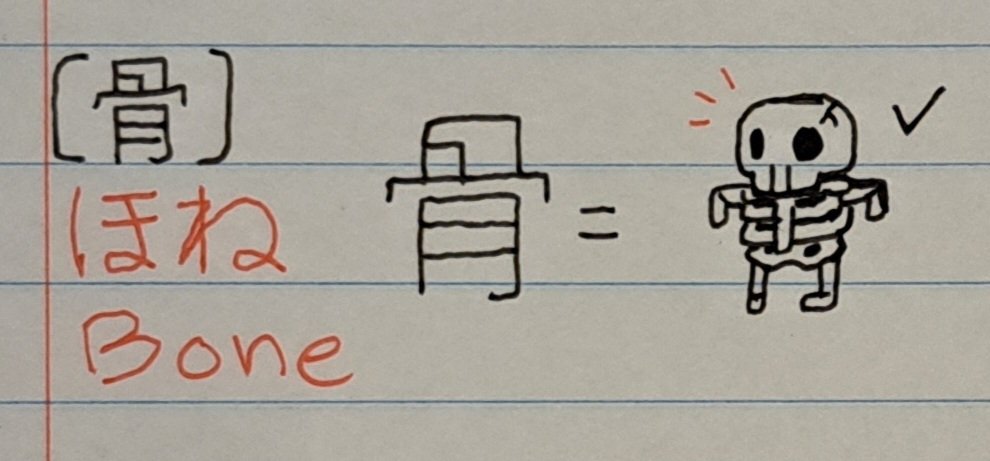 [骨]
ほね
Bone
骨 =